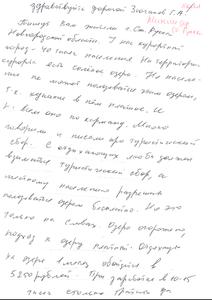 Здравствуйте дорогой Зюганов Г.А.
Пишут Вам жители г. Ст. Русса
Новгородской области. У нас курортный
город - 40 тысяч населения. На территории
курорта есть солёное озеро. Но населе-
ние не может пользоваться этим озером,
т.к. купание в нём платное. И
всем это по карману. Много
говорили и писали про туристический
сбор. С отдыхающих людей должен
взиматься туристический сбор, а
местному населению разрешить
пользоваться озером бесплатно. Но это
только на словах. Озеро огорожено,
подход к озеру платный. Отдохнуть
на озере 1 месяц обойдётся в
5250 рублей. При зарплате в 10-15
тысяч столько тратить